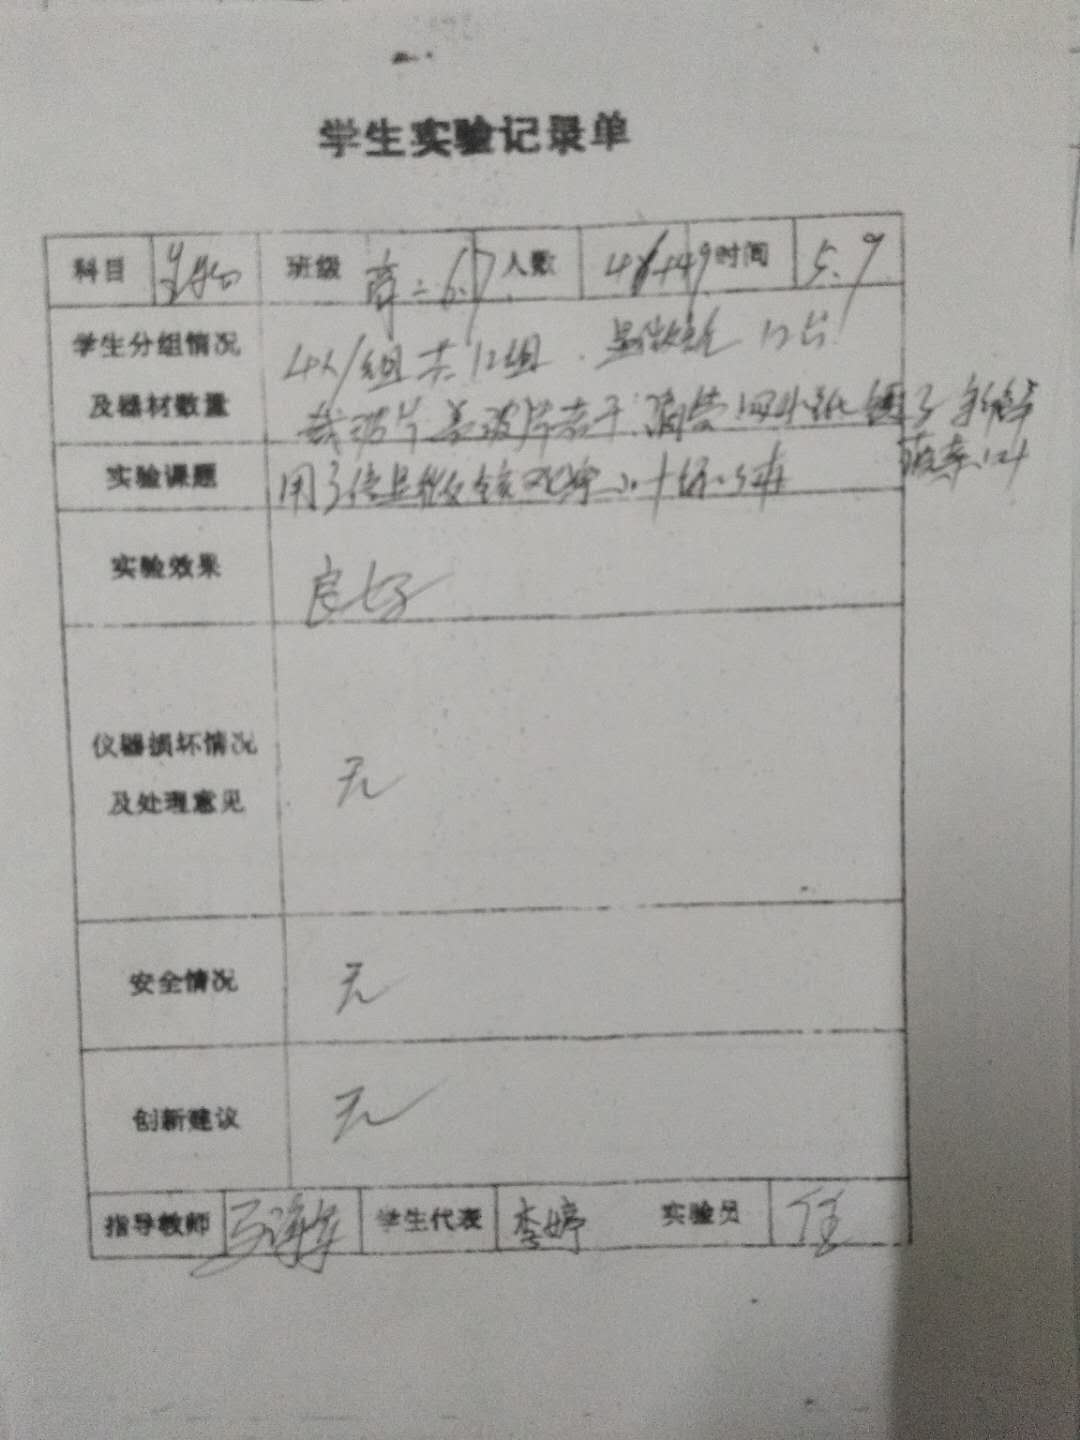 学生实验记录单
科目 生物 班级 高二6.7 人数 48+49 时间 5.9
学生分组情况 4人/组 共12组. 显微镜 12台
及器材数量 载玻片 盖玻片若干 滴管 镊子
实验课题 用 显微镜观察
实验效果 良好
仪器损坏情况
及处理意见 无
安全情况 无
创新建议 无
指导教师 学生代表 李婷 实验员 任